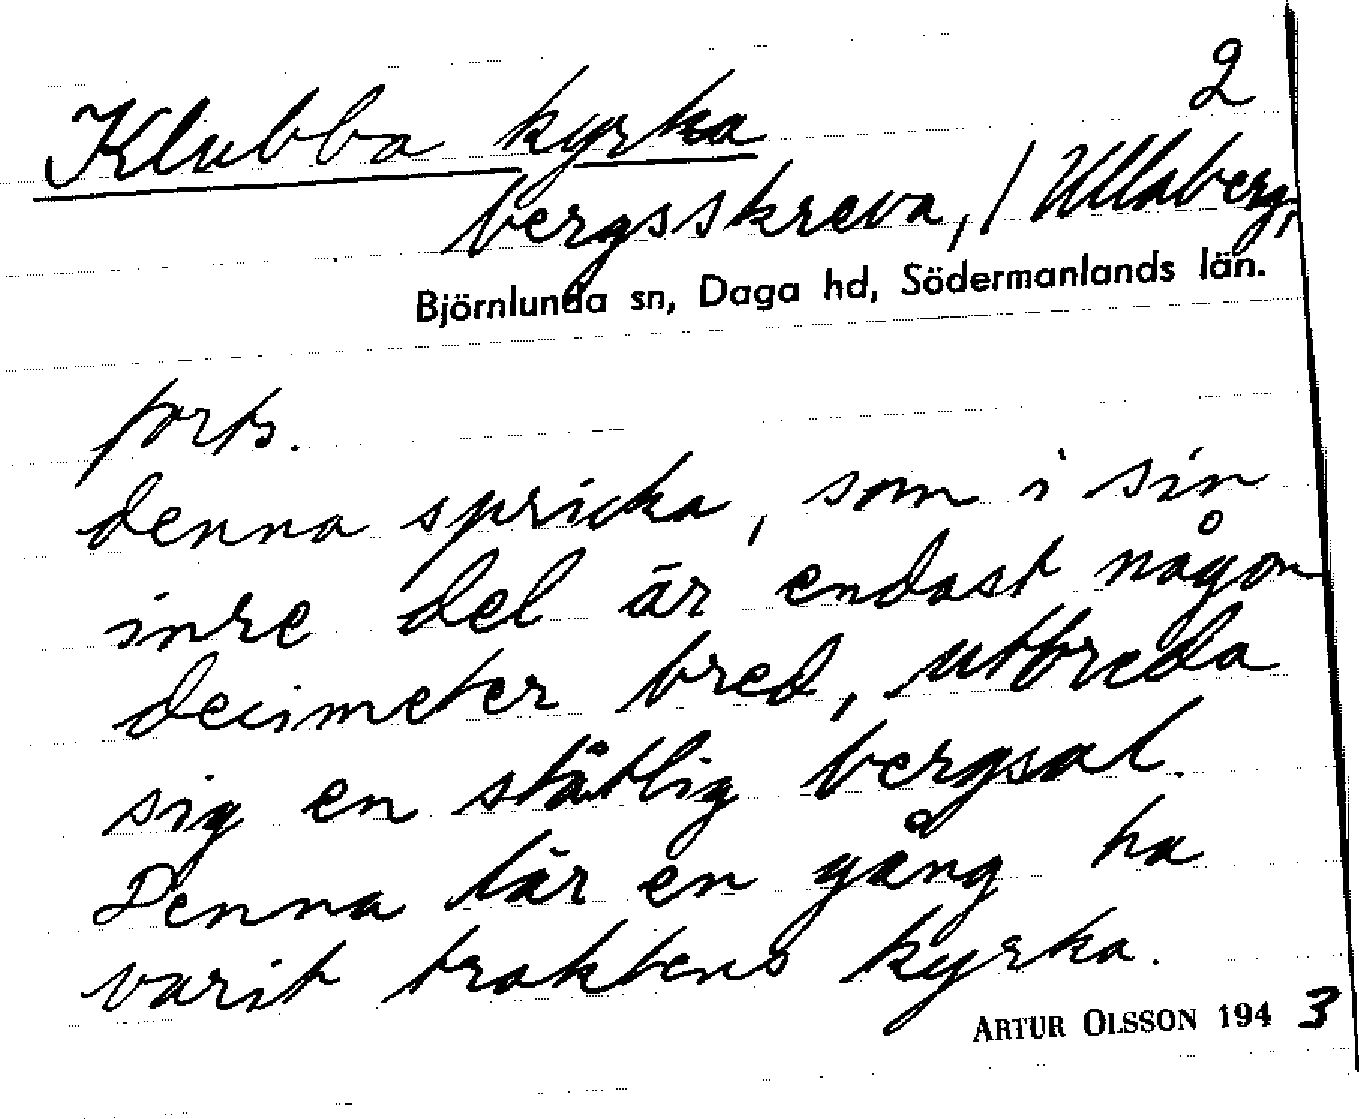 2
Klubba kyrka
bergsskreva, / Ullaberg,
Björnlunda sn, Daga hd, Södermanlands län.
forts.
denna spricka, som i sin
inre del är endast någon
decimeter bred, utbreda
sig en ståtlig bergsal.
Denna lär en gång ha
varit traktens kyrka.
ARTUR OLSSON 1943